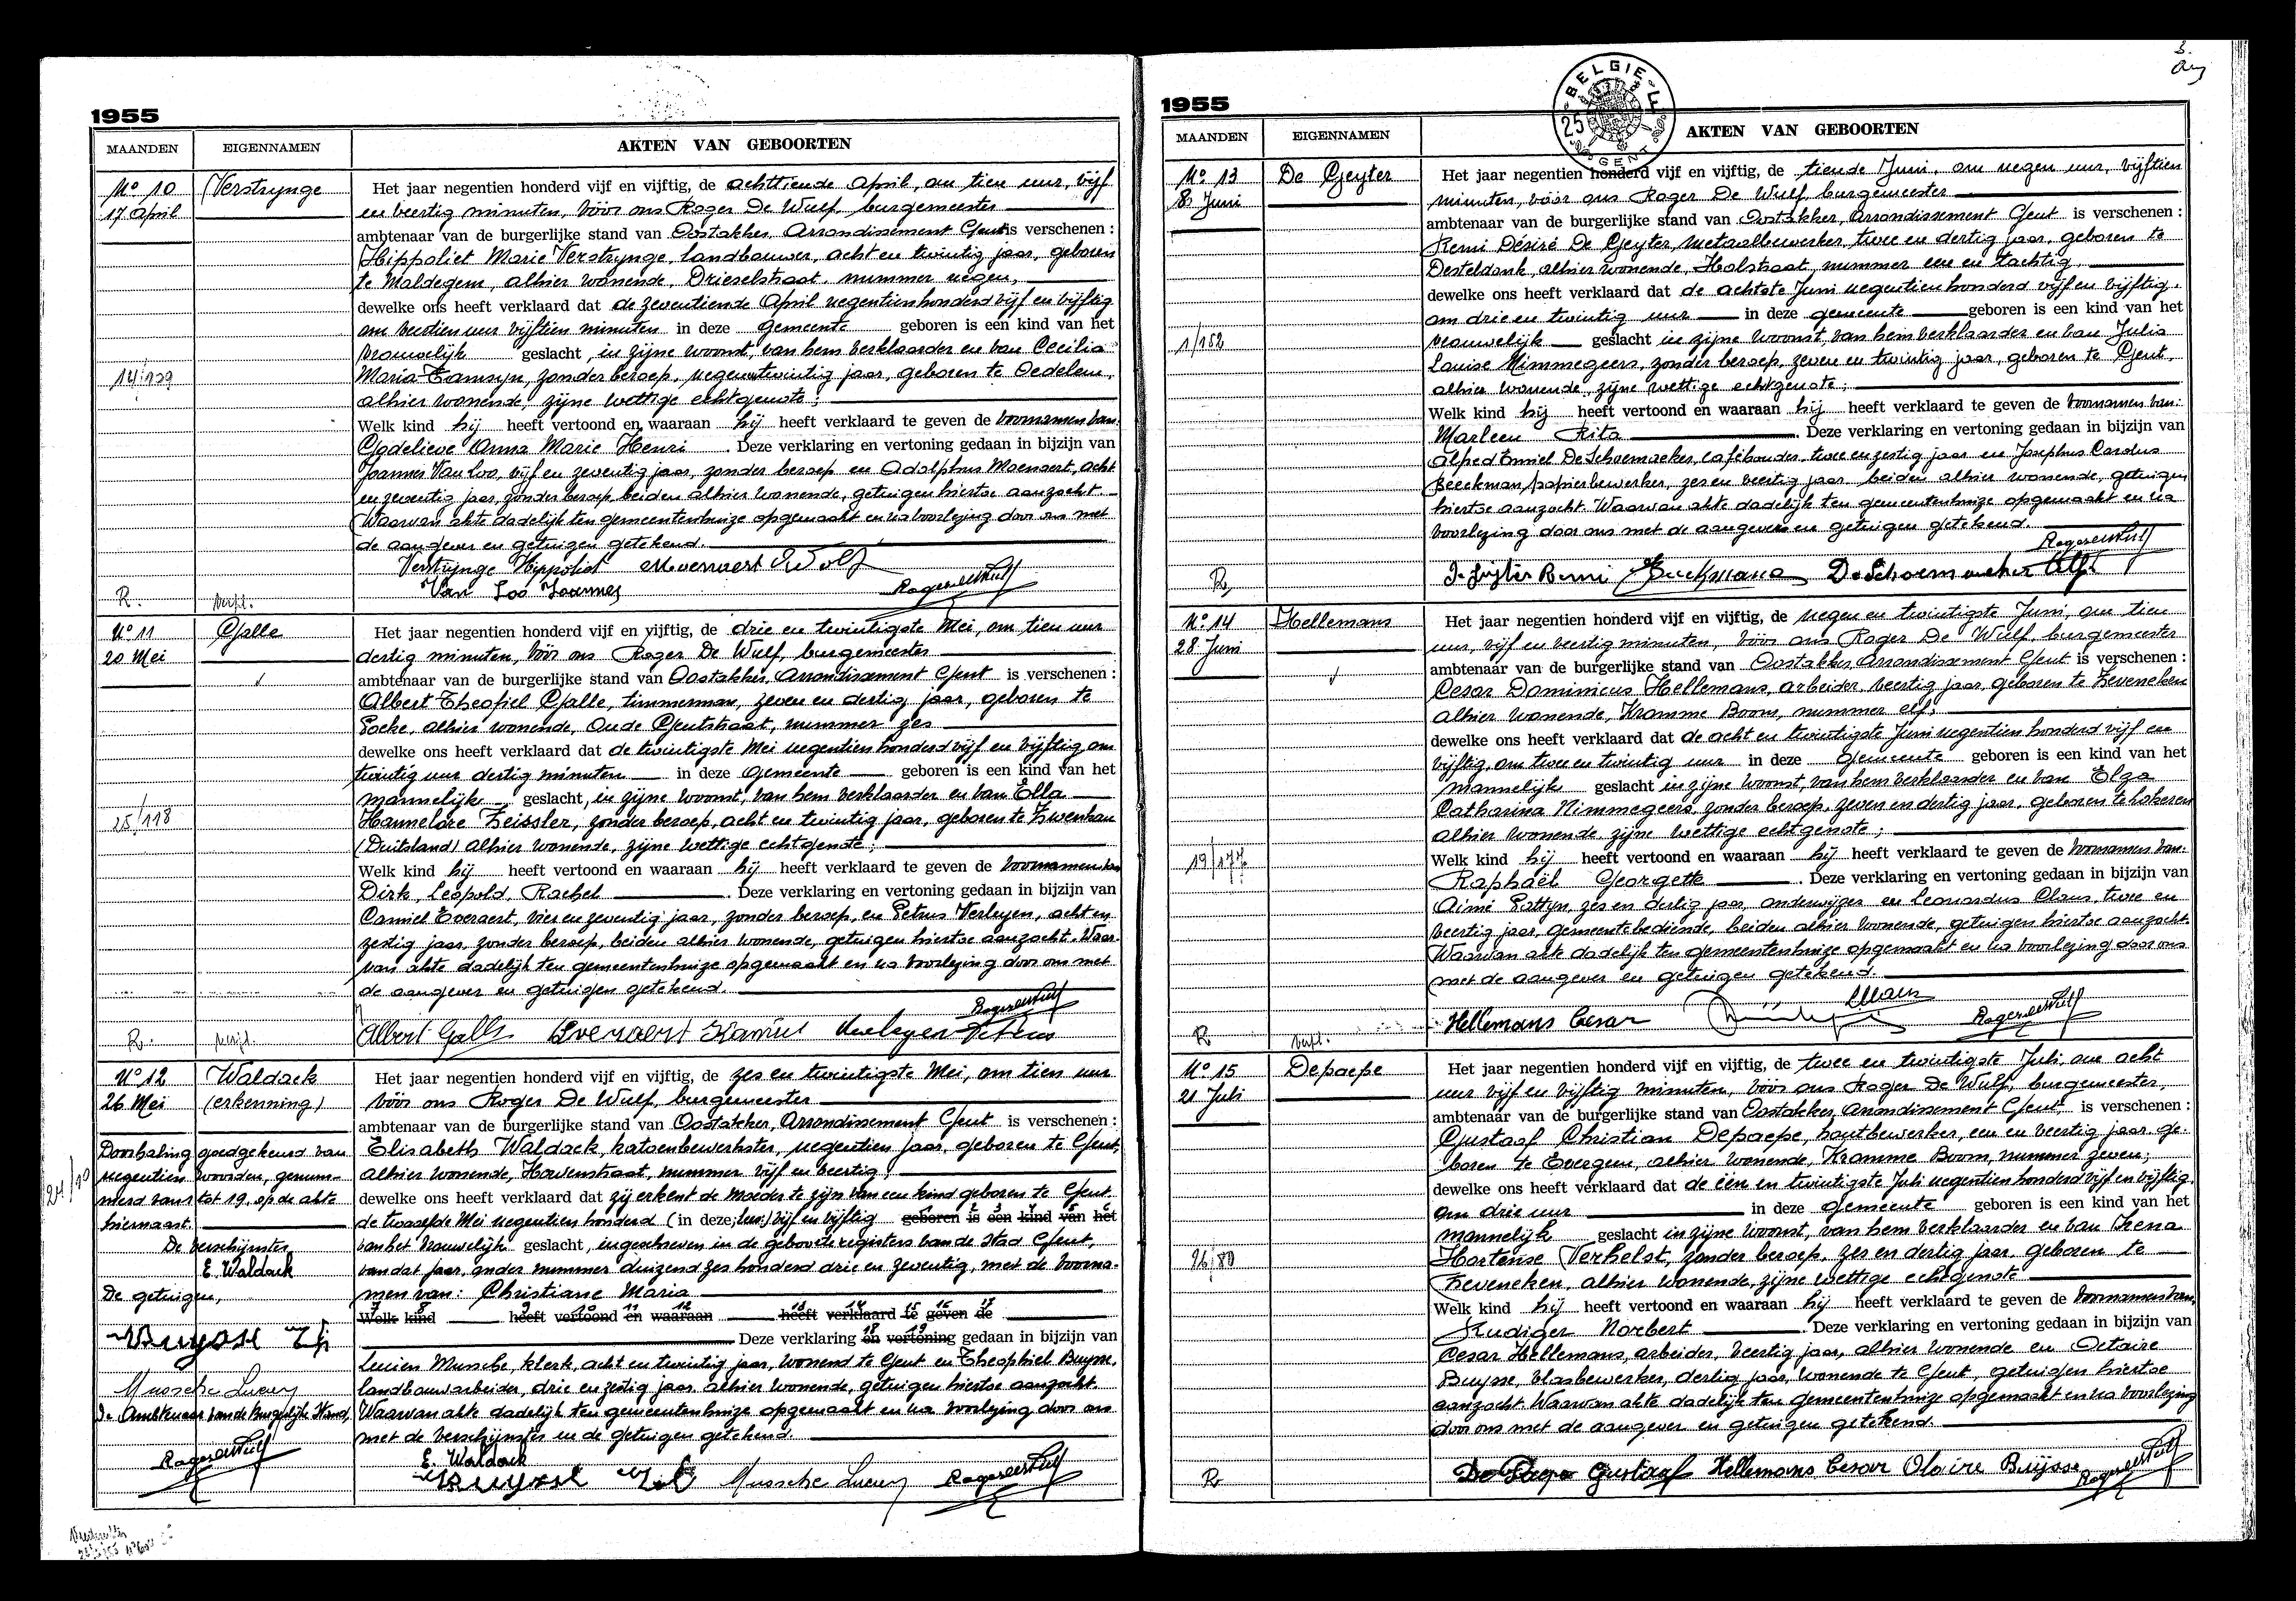 1955
MAANDEN EIGENNAMEN AKTEN VAN GEBOORTEN
No 10 Verstrynge
17 April
14/139
R. Verpl.
Het jaar negentien honderd vijf en vijftig, de achttiende April, om tien uur, vijf
en veertig minuten, vóór ons Roger De Wulf, burgemeester
ambtenaar van de burgerlijke stand van Oostakker, Arrondissement Gent is verschenen :
Hippoliet Marie Verstrynge, landbouwer, acht en twintig jaar, geboren
te Maldegem, alhier wonende, Drieselstraat, nummer negen,
dewelke ons heeft verklaard dat de zeventiende April negentienhonderd vijf en vijftig
om veertien uur vijftien minuten in deze gemeente geboren is een kind van het
vrouwelijk geslacht, in zijne woonst, van hem verklaarder en van Cecilia
Maria Tamsyn, zonder beroep, negenentwintig jaar, geboren te Oedelem,
alhier wonende, zijne wettige echtgenote ;
Welk kind hij heeft vertoond en waaraan hij heeft verklaard te geven de voornamen van:
Godelieve Anna Marie Henri . Deze verklaring en vertoning gedaan in bijzijn van
Joannes Van Loo, vijf en zeventig jaar, zonder beroep en Adolphus Moenaert, acht
en zeventig jaar, zonder beroep, beiden alhier wonende, getuigen hiertoe aanzocht.
Waarvan akte dadelijk ten gemeentenhuize opgemaakt en na voorlezing door ons met
de aangever en getuigen getekend.
Verstrynge Hippoliet Moenaert Adolf
Van Loo Joannes Roger De Wulf
No 11 Galle
20 Mei
25/118
R.
Het jaar negentien honderd vijf en vijftig, de drie en twintigste Mei, om tien uur
dertig minuten, vóór ons Roger De Wulf, burgemeester
ambtenaar van de burgerlijke stand van Oostakker, Arrondissement Gent is verschenen :
Albert Theofiel Galle, timmerman, zeven en dertig jaar, geboren te
Eecke, alhier wonende, Oude Gentstraat, nummer zes
dewelke ons heeft verklaard dat de twintigste Mei negentien honderd vijf en vijftig om
twintig uur dertig minuten in deze gemeente geboren is een kind van het
mannelijk geslacht, in zijne woonst, van hem verklaarder en van Ella
Hannelore Zeissler, zonder beroep, acht en twintig jaar, geboren te Zwenkau
(Duitsland) alhier wonende, zijne wettige echtgenote ;
Welk kind hij heeft vertoond en waaraan hij heeft verklaard te geven de voornamen van
Dirk, Leopold, Rachel . Deze verklaring en vertoning gedaan in bijzijn van
Camiel Everaert, vier en zeventig jaar, zonder beroep, en Petrus Verleyen, acht en
zestig jaar, zonder beroep, beiden alhier wonende, getuigen hiertoe aanzocht. Waar-
van akte dadelijk ten gemeentenhuize opgemaakt en na voorlezing door ons met
de aangever en getuigen getekend.
Roger De Wulf
Albert Galle Everaert Kamiel Verleyen Petrus
No 12 Waldack
26 Mei (erkenning)
Doorhaling goedgekeurd van
negentien woorden, genum-
merd van 1 tot 19, op de akte
hiernaast.
De verschijnster
E. Waldack
De getuigen,
Buysse Th
Mussche Lucien
De Ambtenaar van de Burgerlijke Stand,
Roger De Wulf
Het jaar negentien honderd vijf en vijftig, de zes en twintigste Mei, om tien uur
vóór ons Roger De Wulf, burgemeester
ambtenaar van de burgerlijke stand van Oostakker, Arrondissement Gent is verschenen :
Elisabeth Waldack, katoenbewerkster, negentien jaar, geboren te Gent,
alhier wonende, Hovenstraat, nummer vijf en veertig,
dewelke ons heeft verklaard dat zij erkent de moeder te zijn van een kind geboren te Gent,
de twaalfde Mei negentien honderd (in deze: leer) vijf en vijftig geboren is een kind van het
van het vrouwelijk geslacht, ingeschreven in de geboorteregisters van de stad Gent,
van dat jaar, onder nummer duizend zes honderd drie en zeventig, met de voorna-
men van: Christiane Maria
Welk kind heeft vertoond en waaraan heeft verklaard te geven de
Deze verklaring en vertoning gedaan in bijzijn van
Lucien Mussche, klerk, acht en twintig jaar, wonend te Gent en Theophiel Buysse,
landbouwarbeider, drie en zestig jaar, alhier wonende, getuigen hiertoe aanzocht.
Waarvan akte dadelijk ten gemeentenhuize opgemaakt en na voorlezing door ons
met de verschijnster en de getuigen getekend.
E. Waldack
Buysse Mussche Lucien Roger De Wulf
1955
BELGIE 25 F GENT
3.
MAANDEN EIGENNAMEN AKTEN VAN GEBOORTEN
No 13 De Geyter
8 Juni
1/152
R
Het jaar negentien honderd vijf en vijftig, de tiende Juni, om negen uur, vijftien
minuten, vóór ons Roger De Wulf, burgemeester
ambtenaar van de burgerlijke stand van Oostakker, Arrondissement Gent is verschenen :
Remi Désiré De Geyter, metaalbewerker, twee en dertig jaar, geboren te
Desteldonk, alhier wonende, Holstraat, nummer een en tachtig,
dewelke ons heeft verklaard dat de achtste Juni negentien honderd vijf en vijftig,
om drie en twintig uur in deze gemeente geboren is een kind van het
vrouwelijk geslacht in zijne woonst, van hem verklaarder en van Julia
Louise Nimmegeers, zonder beroep, zeven en twintig jaar, geboren te Gent,
alhier wonende, zijne wettige echtgenote ;
Welk kind hij heeft vertoond en waaraan hij heeft verklaard te geven de voornamen van:
Marleen Rita . Deze verklaring en vertoning gedaan in bijzijn van
Alfred Emiel De Schoemaeker, caféhouder, twee en zestig jaar en Josephus Carolus
Beeckman, papierbewerker, zes en veertig jaar beiden alhier wonende, getuigen
hiertoe aanzocht. Waarvan akte dadelijk ten gemeentenhuize opgemaakt en na
voorlezing door ons met de aangever en getuigen getekend.
Roger De Wulf
De Geyter Remi Beeckman De Schoemaeker Alf.
No 14 Hellemans
28 Juni
19/177
R Verpl.
Het jaar negentien honderd vijf en vijftig, de negen en twintigste Juni, om tien
uur, vijf en veertig minuten, vóór ons Roger De Wulf, burgemeester
ambtenaar van de burgerlijke stand van Oostakker, Arrondissement Gent is verschenen :
Cesar Dominicus Hellemans, arbeider, veertig jaar, geboren te Zeveneken
alhier wonende, Kromme Boom, nummer elf,
dewelke ons heeft verklaard dat de acht en twintigste Juni negentien honderd vijf en
vijftig, om twee en twintig uur in deze gemeente geboren is een kind van het
mannelijk geslacht in zijne woonst, van hem verklaarder en van Elza
Catharina Nimmegeers, zonder beroep, zeven en dertig jaar, geboren te Lokeren
alhier wonende, zijne wettige echtgenote ;
Welk kind hij heeft vertoond en waaraan hij heeft verklaard te geven de voornamen van:
Raphaël Georgette . Deze verklaring en vertoning gedaan in bijzijn van
Aimé zes en dertig jaar, onderwijzer en Leonardus Claus, twee en
veertig jaar, gemeentebediende, beiden alhier wonende, getuigen hiertoe aanzocht.
Waarvan akte dadelijk ten gemeentenhuize opgemaakt en na voorlezing door ons
met de aangever en getuigen getekend.
Hellemans Cesar Claus Roger De Wulf
No 15 Depaepe
21 Juli
26/80
R
Het jaar negentien honderd vijf en vijftig, de twee en twintigste Juli, om acht
uur vijf en vijftig minuten, vóór ons Roger De Wulf, burgemeester,
ambtenaar van de burgerlijke stand van Oostakker, Arrondissement Gent, is verschenen :
Gustaaf Christian Depaepe, houtbewerker, een en veertig jaar, ge-
boren te Evergem, alhier wonende, Kromme Boom, nummer zeven;
dewelke ons heeft verklaard dat de een en twintigste Juli negentien honderd vijf en vijftig,
om drie uur in deze gemeente geboren is een kind van het
mannelijk geslacht in zijne woonst, van hem verklaarder en van Irena
Hortense Verhelst, zonder beroep, zes en dertig jaar, geboren te
Zeveneken, alhier wonende, zijne wettige echtgenote
Welk kind hij heeft vertoond en waaraan hij heeft verklaard te geven de voornamen van,
Rudiger Norbert . Deze verklaring en vertoning gedaan in bijzijn van
Cesar Hellemans, arbeider, veertig jaar, alhier wonende en Octaire
Buysse, vlasbewerker, dertig jaar, wonende te Gent, getuigen hiertoe
aanzocht. Waarvan akte dadelijk ten gemeentenhuize opgemaakt en na voorlezing
door ons met de aangever en getuigen getekend.
De Paepe Gustaaf Hellemans Cesar Buijsse Roger De Wulf